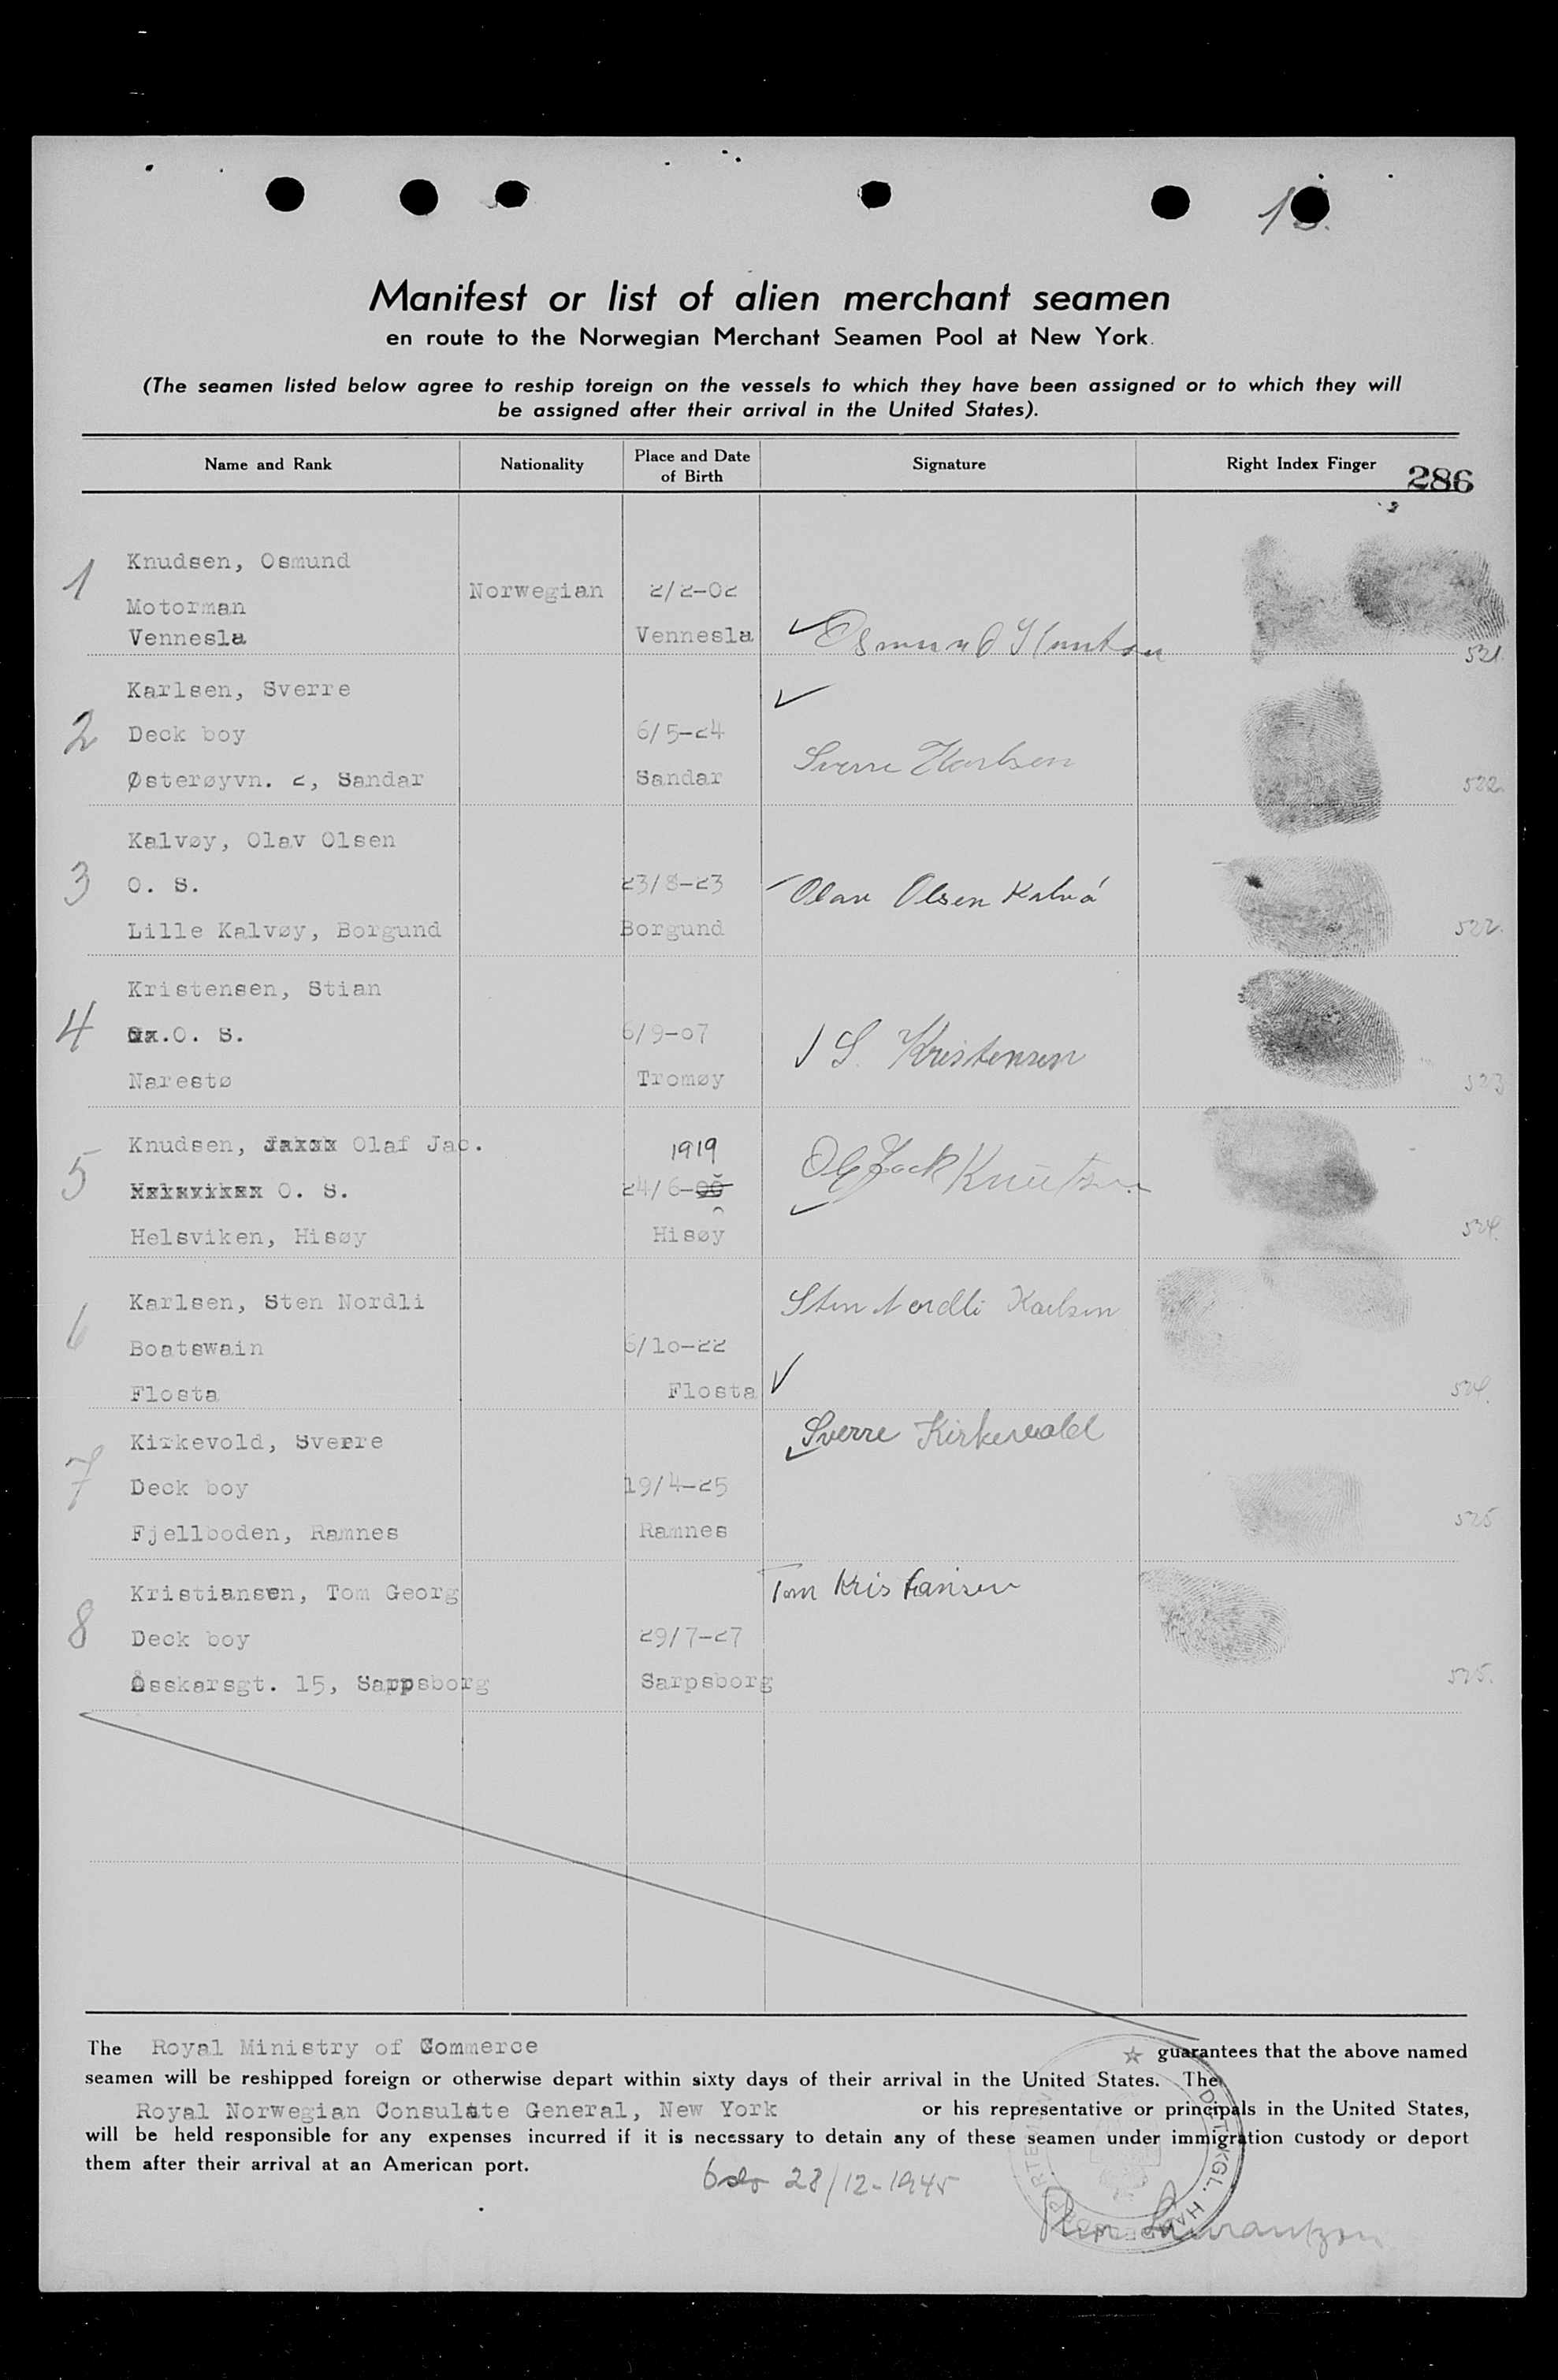 Manifest or list of alien merchant seamen
en route to the Norwegian Merchant Seamen Pool at New York.
(The seamen listed below agree to reship foreign on the vessels to which they have been assigned or to which they will
be assigned after their arrival in the United States).
Name and Rank Nationality Place and Date of Birth Signature Right Index Finger 286
1 Knudsen, Osmund
Motorman Norwegian 2/2-02
Vennesla Vennesla Osmund 521.
Karlsen, Sverre
2 Deck boy 6/5-24
Østerøyvn. 2, Sandar Sandar Sverre Karlsen 522.
Kalvøy, Olav Olsen
3 O. S. 23/8-23 Olav Olsen Kalvå
Lille Kalvøy, Borgund Borgund 522.
Kristensen, Stian
4 O. S. 6/9-07 S. Kristensen
Narestø Tromøy 523
Knudsen, Olaf Jac. 1919
5 O. S. 24/6-00 Knutsen
Helsviken, Hisøy Hisøy 524.
Karlsen, Sten Nordli Sten Nordli Karlsen
6 Boatswain 6/10-22
Flosta Flosta 524.
Kirkevold, Sverre Sverre Kirkevold
7 Deck boy 19/4-25
Fjellboden, Ramnes Ramnes 525
Kristiansen, Tom Georg Tom Kristiansen
8 Deck boy 29/7-27
Åsskarsgt. 15, Sarpsborg Sarpsborg 525.
The Royal Ministry of Commerce guarantees that the above named
seamen will be reshipped foreign or otherwise depart within sixty days of their arrival in the United States. The
Royal Norwegian Consulate General, New York or his representative or principals in the United States,
will be held responsible for any expenses incurred if it is necessary to detain any of these seamen under immigration custody or deport
them after their arrival at an American port.
Oslo 28/12-1945
DET KGL. HA